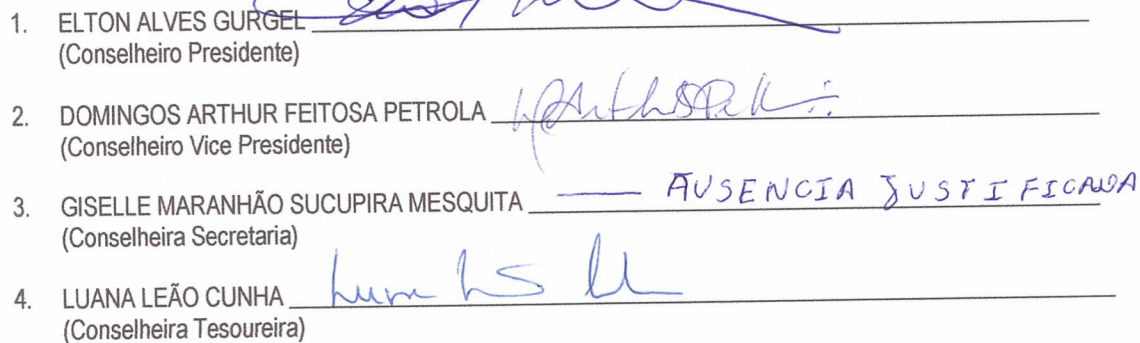 1. ELTON ALVES GURGEL
(Conselheiro Presidente)
2. DOMINGOS ARTHUR FEITOSA PETROLA
(Conselheiro Vice Presidente)
3. GISELLE MARANHÃO SUCUPIRA MESQUITA — AUSENCIA JUSTIFICADA
(Conselheira Secretaria)
4. LUANA LEÃO CUNHA
(Conselheira Tesoureira)